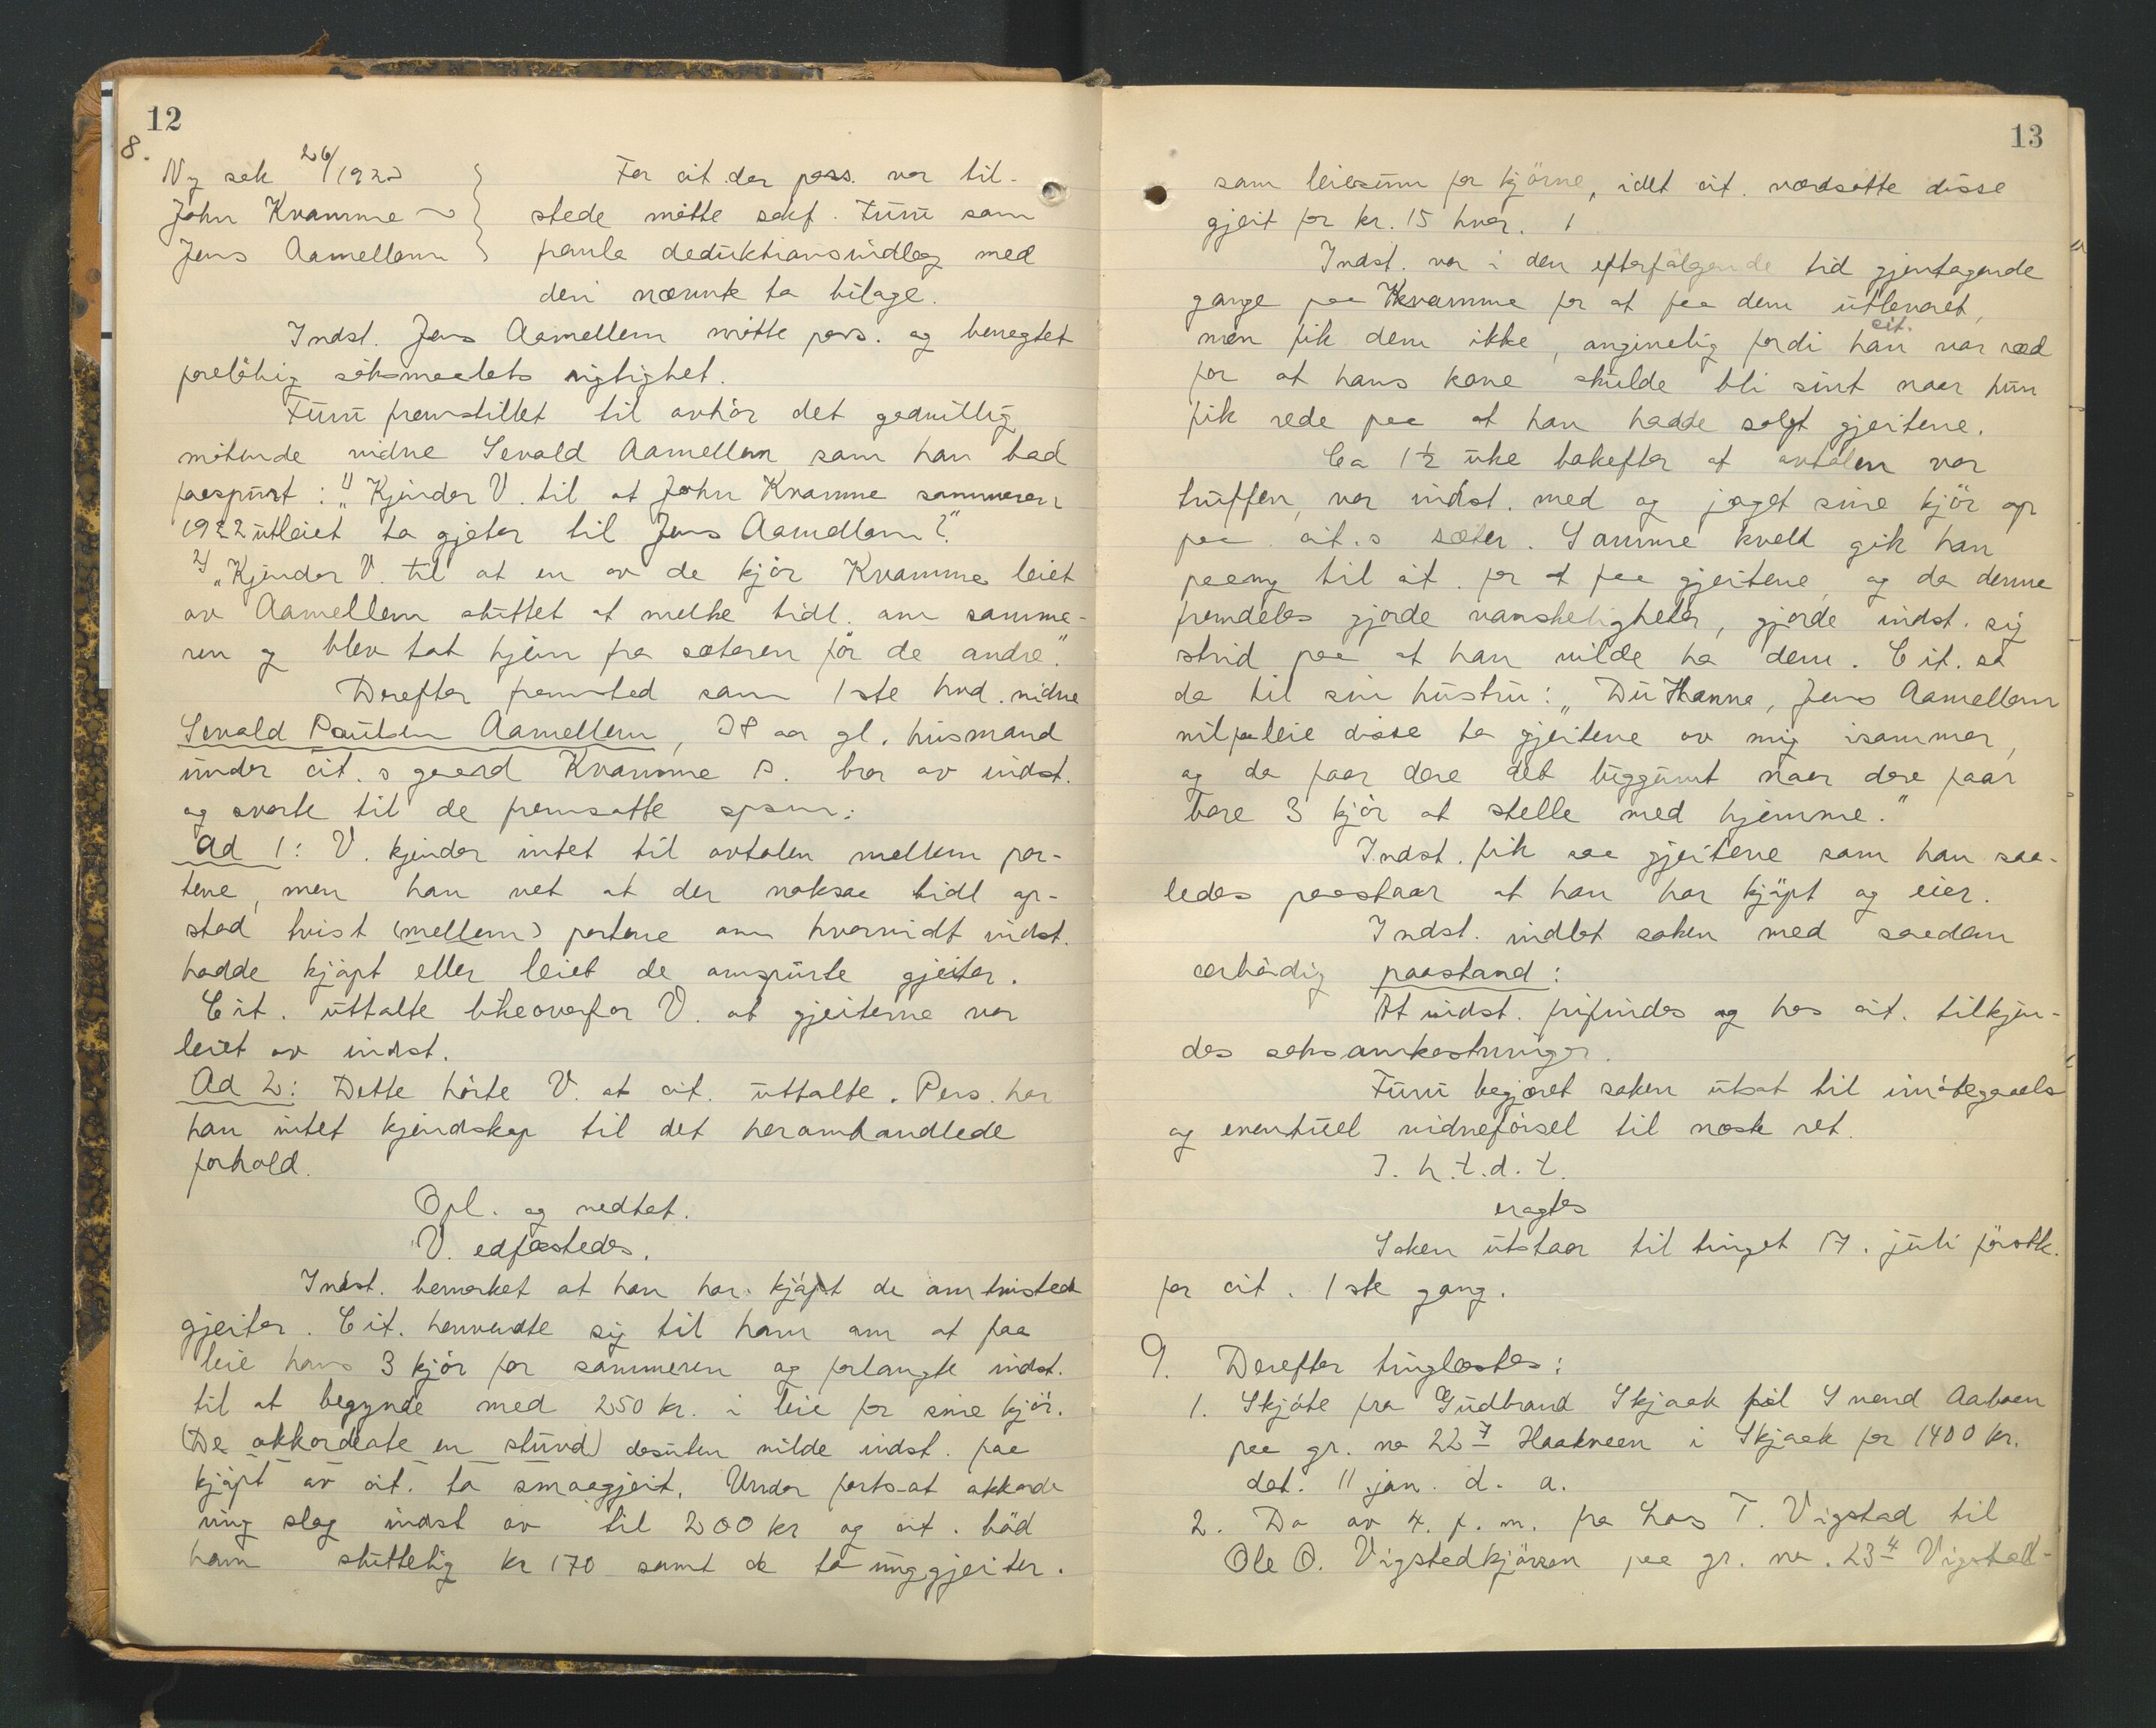 12
8.
Ny sak 26/1923
John Kvamme ~
Jens Aamellem
For cit. der pers. var til-
stede møtte sakf. Furu som
fremla deduktionsindlæg med
deri nævnte to bilage.
Indst. Jens Aamellem møtte pers. og benegtet
foreløbig søksmaalets rigtighet.
Furu fremstillet til avhør det godvillig
møtende vidne Sevald Aamellem som han bad
paaspurt: 1) "Kjender V. til at John Kvamme sommeren
1922 utleiet to gjeter til Jens Aamellem?"
2) "Kjender V. til at en av de kjør Kvamme leiet
av Aamellem sluttet at melke tidl. om somme-
ren og blev tat hjem fra sæteren før de andre."
Derefter fremsted som 1ste hvd. vidne
Sevald Paulsen Aamellem, 38 aar gl. husmand
under cit.s gaard Kvamme s. bror av indst.
og svarte til de fremsatte spsm:
Ad 1: V. kjender intet til avtalen mellem par-
tene, men han vet at der noksaa tidl op-
stod tvist (mellem) partene om hvorvidt indst.
hadde kjøpt eller leiet de omspurte gjeiter.
Cit. uttalte likeoverfor V. at gjeiterne var
leiet av indst.
Ad 2: Dette hørte V. at cit. uttalte. Pers. har
han intet kjendskap til det heromhandlede
forhold.
Opl. og vedtat.
V. edfæstedes.
Indst. bemerket at han har kjøpt de omtvistede
gjeiter. Cit. henvendte sig til ham om at faa
leie hans 3 kjør for sommeren og forlangte indst.
til at begynde med 250 kr. i leie for sine kjør.
(De akkorderte en stund) desuten vilde indst. faa
kjøpt av cit. to smaagjeit. Under forts. at akkorde
ring slog indst av til 200 kr og cit. bød
ham sluttelig kr 170 samt de to unggjeiter.
13
som leiesum for kjørne, idet cit. værdsatte disse
gjeit for kr. 15 hver.
Indst. var i den efterfølgende tid gjentagende
gange paa Kvamme for at faa dem utleveret,
men fik dem ikke, angivelig fordi han cit. var ræd
for at hans kone skulde bli sint naar hun
fik rede paa at han hadde solgt gjeitene.
Ca 1½ uke bakefter at avtalen var
truffen, var indst. med og jaget sine kjør op
paa cit.s sæter. Samme kveld gik han
paany til cit. for at faa gjeitene og da denne
fremdeles gjorde vanskeligheter, gjorde indst. sig
strid paa at han vilde ha dem. Cit. sa
da til sin hustru: "Du Hanna, Jens Aamellem
vil faa leie disse to gjeitene av mig isommer,
og da faar dere det liggjamt naar dere faar
bare 3 kjør at stelle med hjemme."
Indst. fik saa gjeitene som han saa-
ledes paastaar at han har kjøpt og eier.
Indst. indlot saken med saadan
ærbødig paastand:
At indst. frifindes og hos cit. tilkjen-
des saksomkostninger.
Furu begjæret saken utsat til imøtegaaelse
og eventuel vidneførsel til næste ret.
I. h. t. d. t.
eragtes
Saken utstaar til tinget 17. juli førstk.
for cit. 1ste gang.
9. Derefter tinglæstes:
1. Skjøte fra Gudbrand Skjaak til Svend Aaboen
paa gr. no 22 7 Haakveen i Skjaak for 1400 kr.
dat. 11. jan. d. a.
2. Do av 4. f. m. fra Lars T. Vigstad til
Ole O. Vigstadkjærren paa gr. no. 23 4 Vigstad-